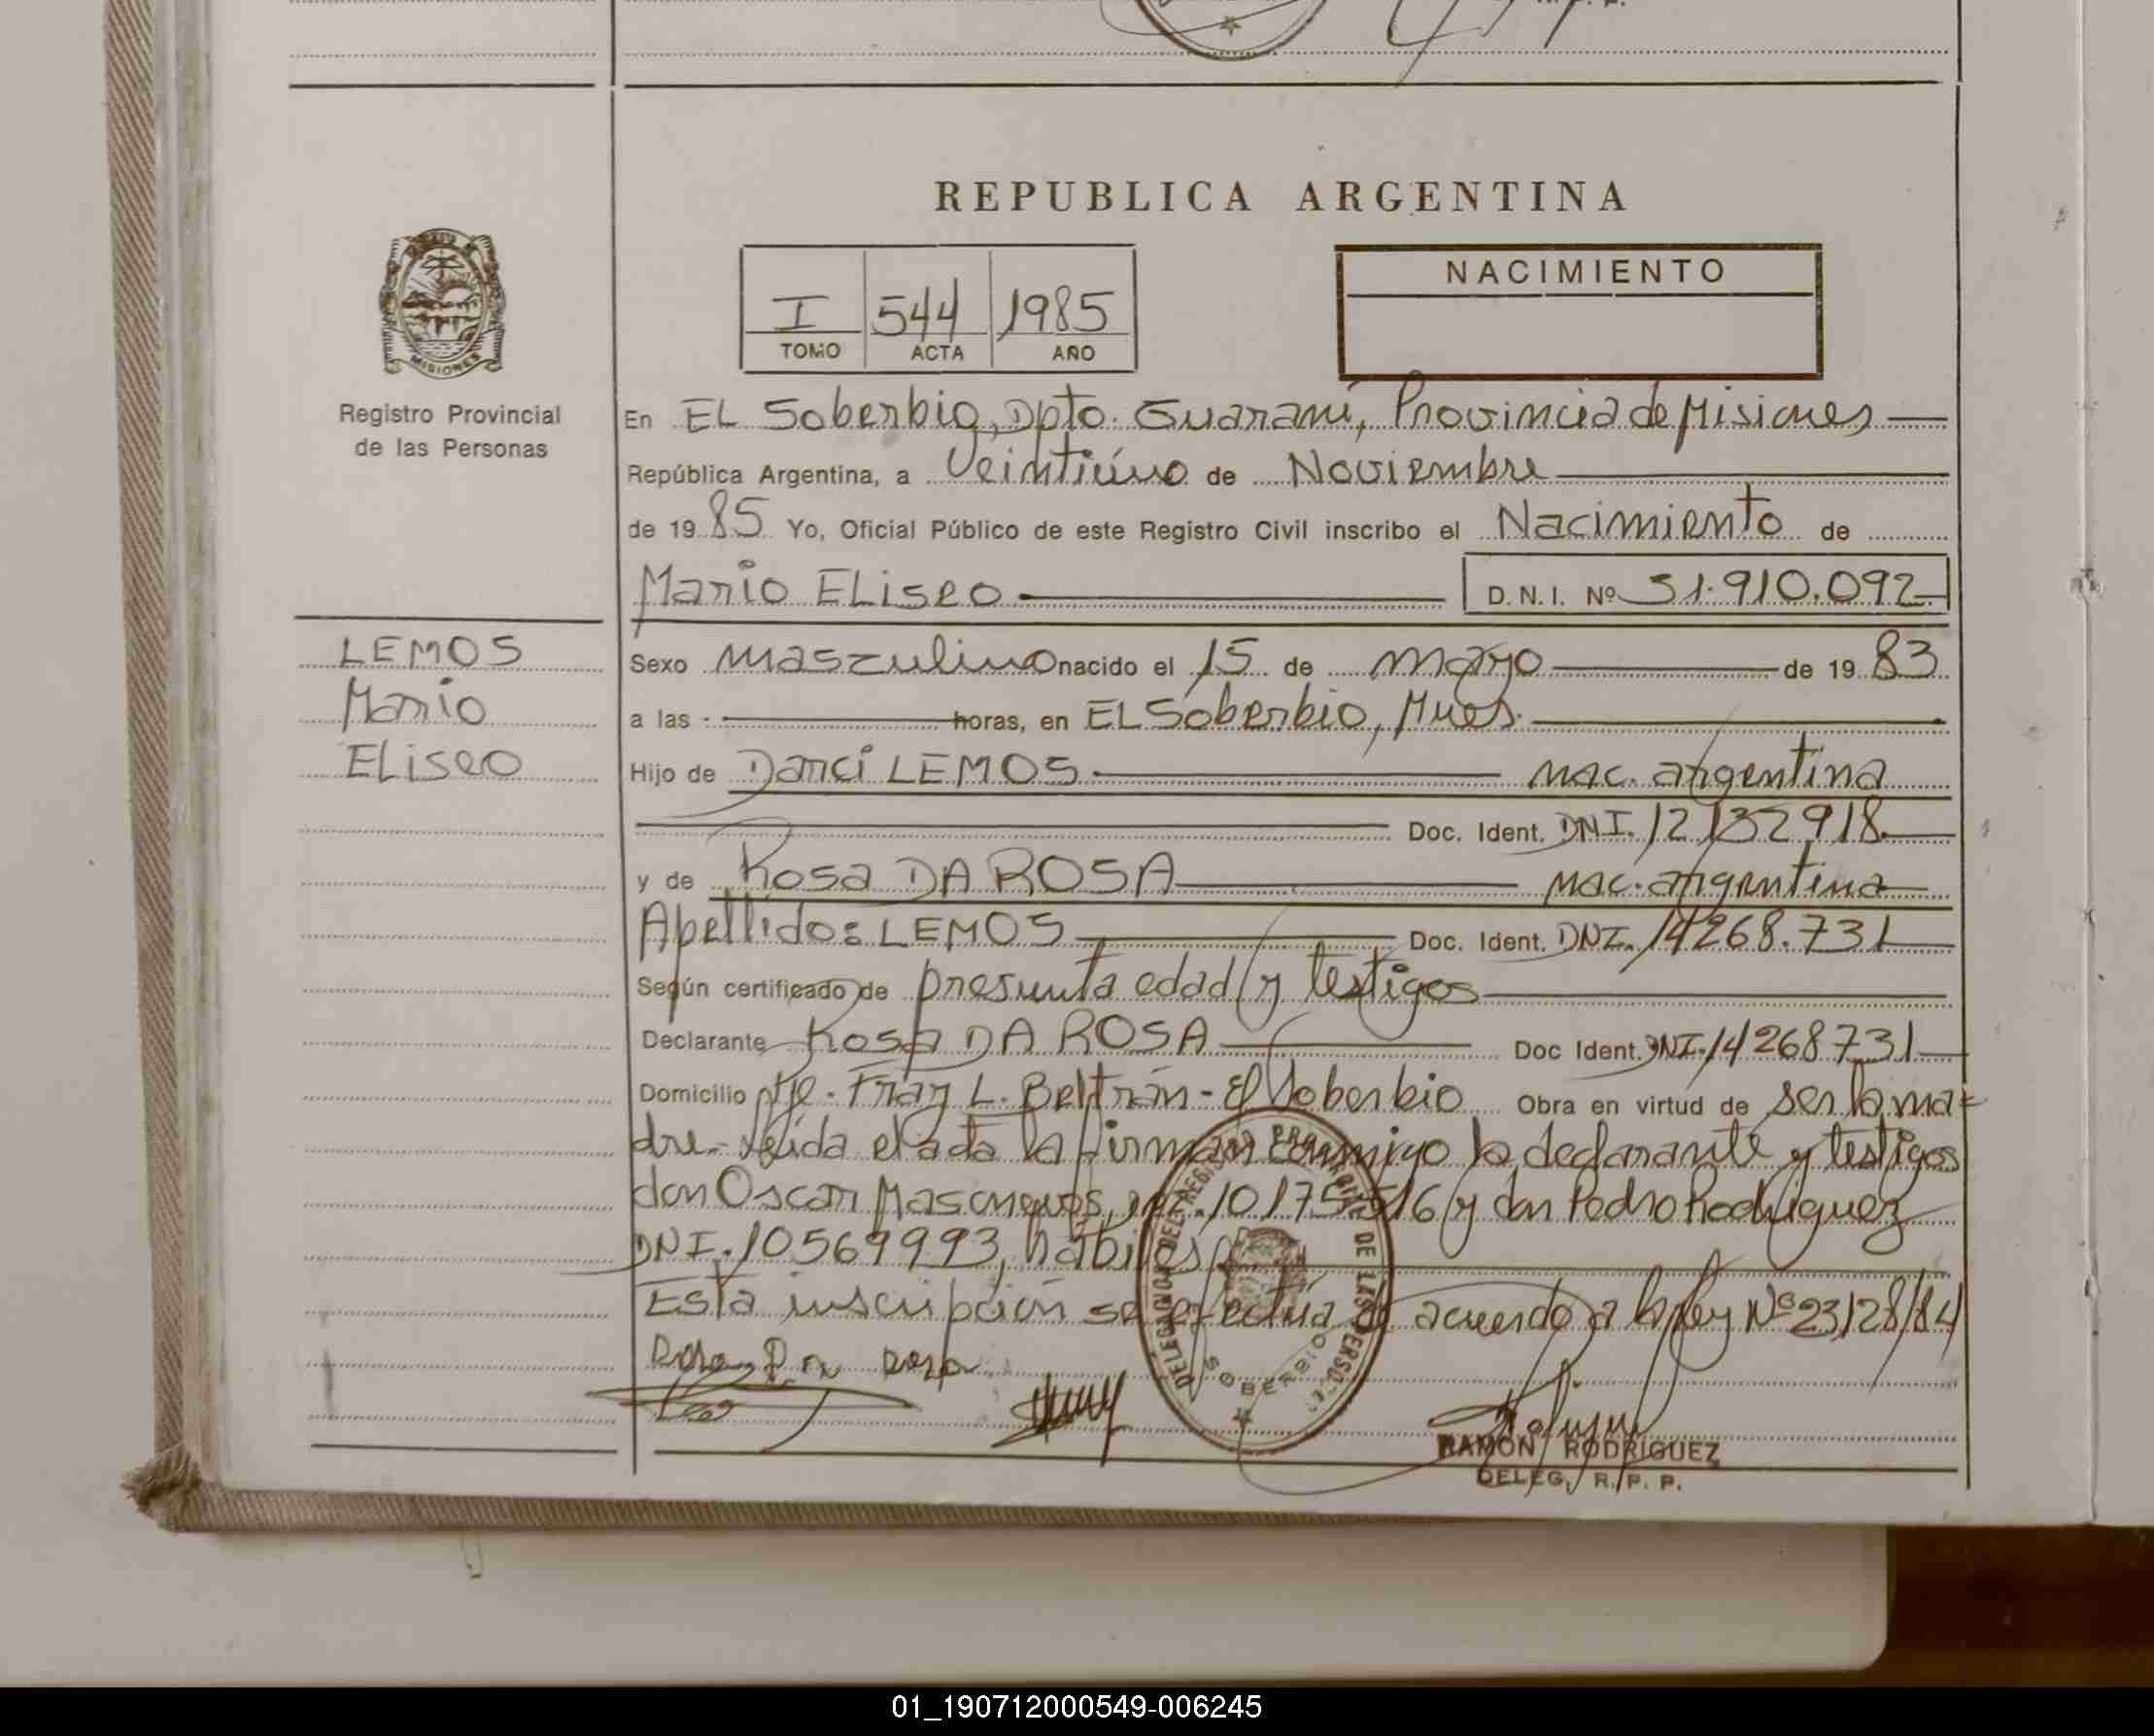 REPUBLICA ARGENTINA
I 544 1985
TOMO ACTA AÑO
NACIMIENTO
MISIONES
Registro Provincial
de las Personas
En EL Soberbio, Dpto. Guaraní, Provincia de Misiones
República Argentina, a Veintiúno de Noviembre
de 1985 Yo, Oficial Público de este Registro Civil inscribo el Nacimiento de
Mario ELiseo D.N.I. Nº 31.910.092
LEMOS
Mario
ELiseo
Sexo masculino nacido el 15 de mayo de 1983
a las horas, en EL Soberbio, Mnes.
Hijo de Darci LEMOS nac. argentina
Doc. Ident. DNI. 12132918
y de Rosa DA ROSA nac. argentina
Apellido: LEMOS Doc. Ident. DNI. 14268.731
Según certificado de presunta edad y testigos
Declarante Rosa DA ROSA Doc Ident. DNI. 14268731
Domicilio Pje. Fray L. Beltrán - El Soberbio Obra en virtud de ser la ma=
dre. Leída el acta la firman conmigo la declarante y testigos
don Oscar 10175516 y don Pedro Rodriguez
DNI. 10569993, hábiles
Esta inscripción se efectúa de acuerdo a la ley Nº 23128/84
Rosa Da Rosa
DELEGACION DEL REGISTRO PROVINCIAL DE LAS PERSONAS
SOBERBIO
RAMON RODRIGUEZ
DELEG. R. P. P.
01_190712000549-006245